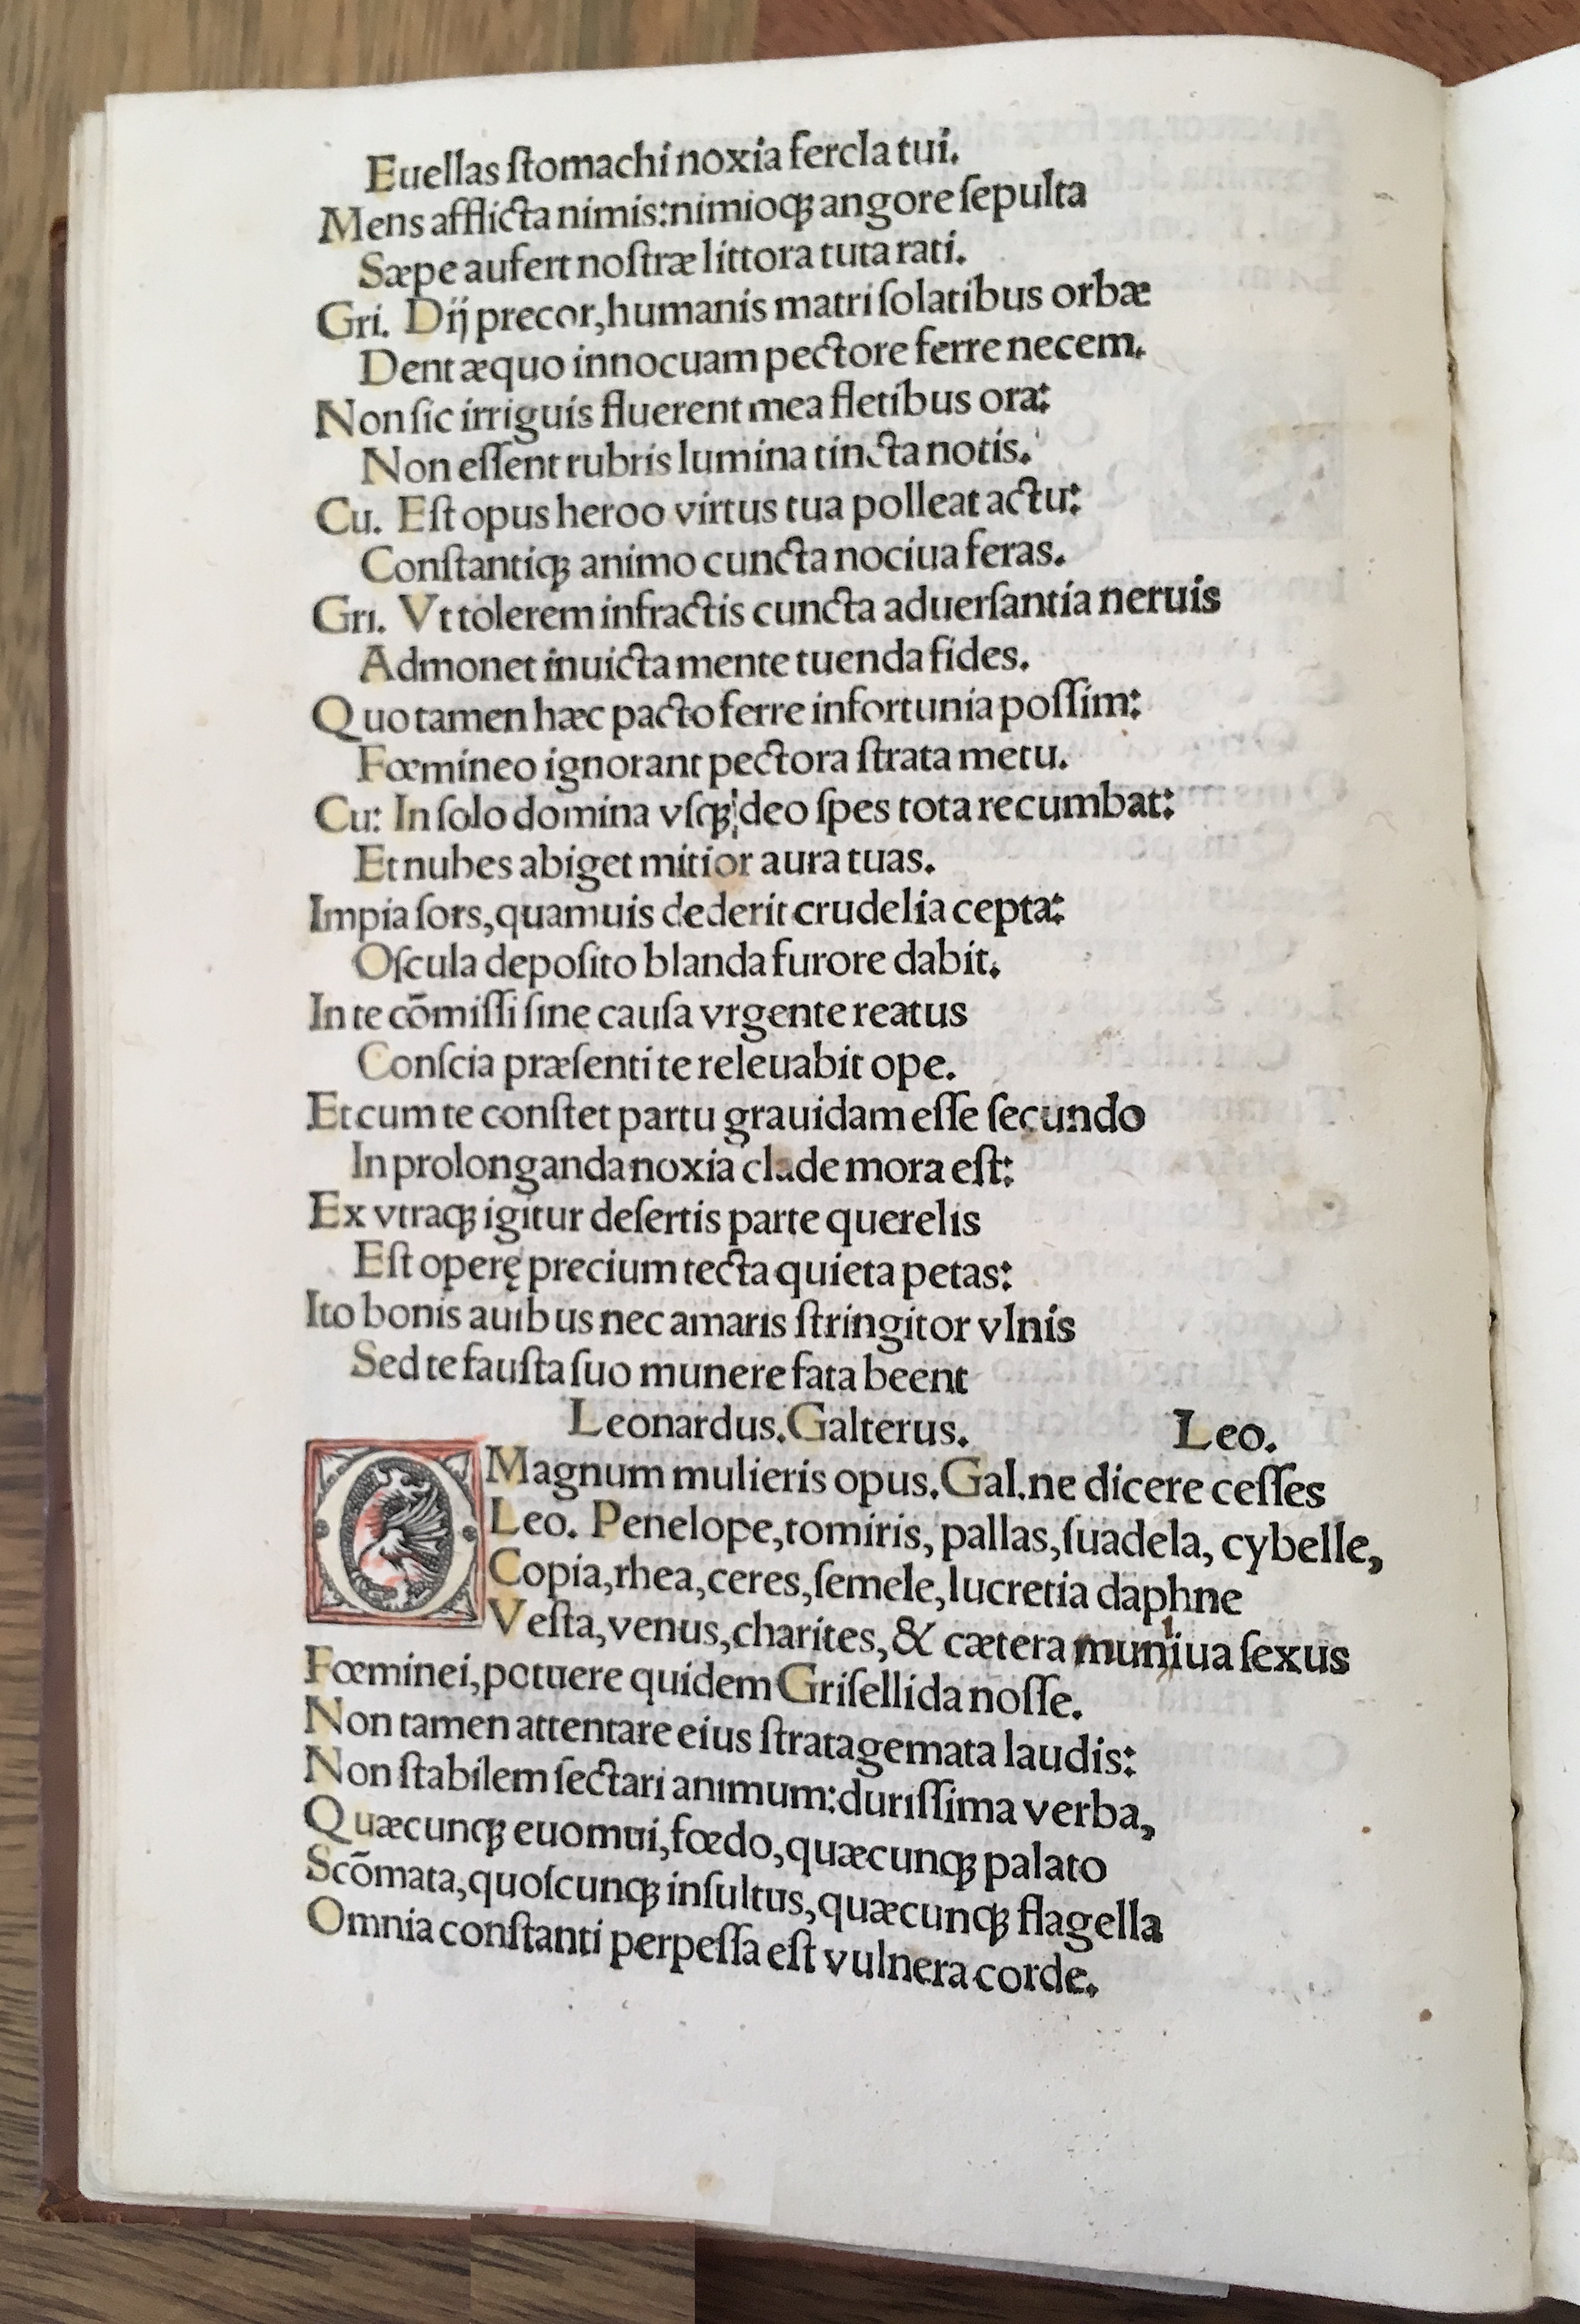 Euellas ſtomachi noxia fercla tui.
Mens afflicta nimis:nimioqꝫ angore ſepulta
Sæpe aufert noſtræ littora tuta rati.
Gri. Dij precor,humanis matri ſolatibus orbæ
Dent æquo innocuam pectore ferre necem.
Non ſic irriguis fluerent mea fletibus ora:
Non eſſent rubris lumina tincta notis.
Cu. Eſt opus heroo virtus tua polleat actu:
Conſtantiqꝫ animo cuncta nociua feras.
Gri. Vt tolerem infractis cuncta aduerſantia neruis
Admonet inuicta mente tuenda fides.
Quo tamen hæc pacto ferre infortunia poſſim:
Fœmineo ignorant pectora ſtrata metu.
Cu: In ſolo domina vſqꝫ deo ſpes tota recumbat:
Et nubes abiget mitior aura tuas.
Impia ſors,quamuis dederit crudelia cepta:
Oſcula depoſito blanda furore dabit.
In te cõmiſſi ſine cauſa vrgente reatus
Conſcia præſenti te releuabit ope.
Et cum te conſtet partu grauidam eſſe ſecundo
In prolonganda noxia clade mora eſt:
Ex vtraqꝫ igitur deſertis parte querelis
Eſt operę precium tecta quieta petas:
Ito bonis auibus nec amaris ſtringitor vlnis
Sed te fauſta ſuo munere fata beent
Leonardus.Galterus. Leo.
O Magnum mulieris opus.Gal.ne dicere ceſſes
Leo. Penelope,tomiris, pallas,ſuadela, cybelle,
Copia,rhea,ceres,ſemele,lucretia daphne
Veſta,venus,charites,& cætera ſexus
Fœminei,potuere quidem Griſellida noſſe.
Non tamen attentare eius ſtratagemata laudis:
Non ſtabilem ſectari animum:duriſſima verba,
Quæcunqꝫ euomui,fœdo,quæcunqꝫ palato
Scõmata,quoſcunqꝫ inſultus,quæcunqꝫ flagella
Omnia conſtanti perpeſſa eſt vulnera corde.